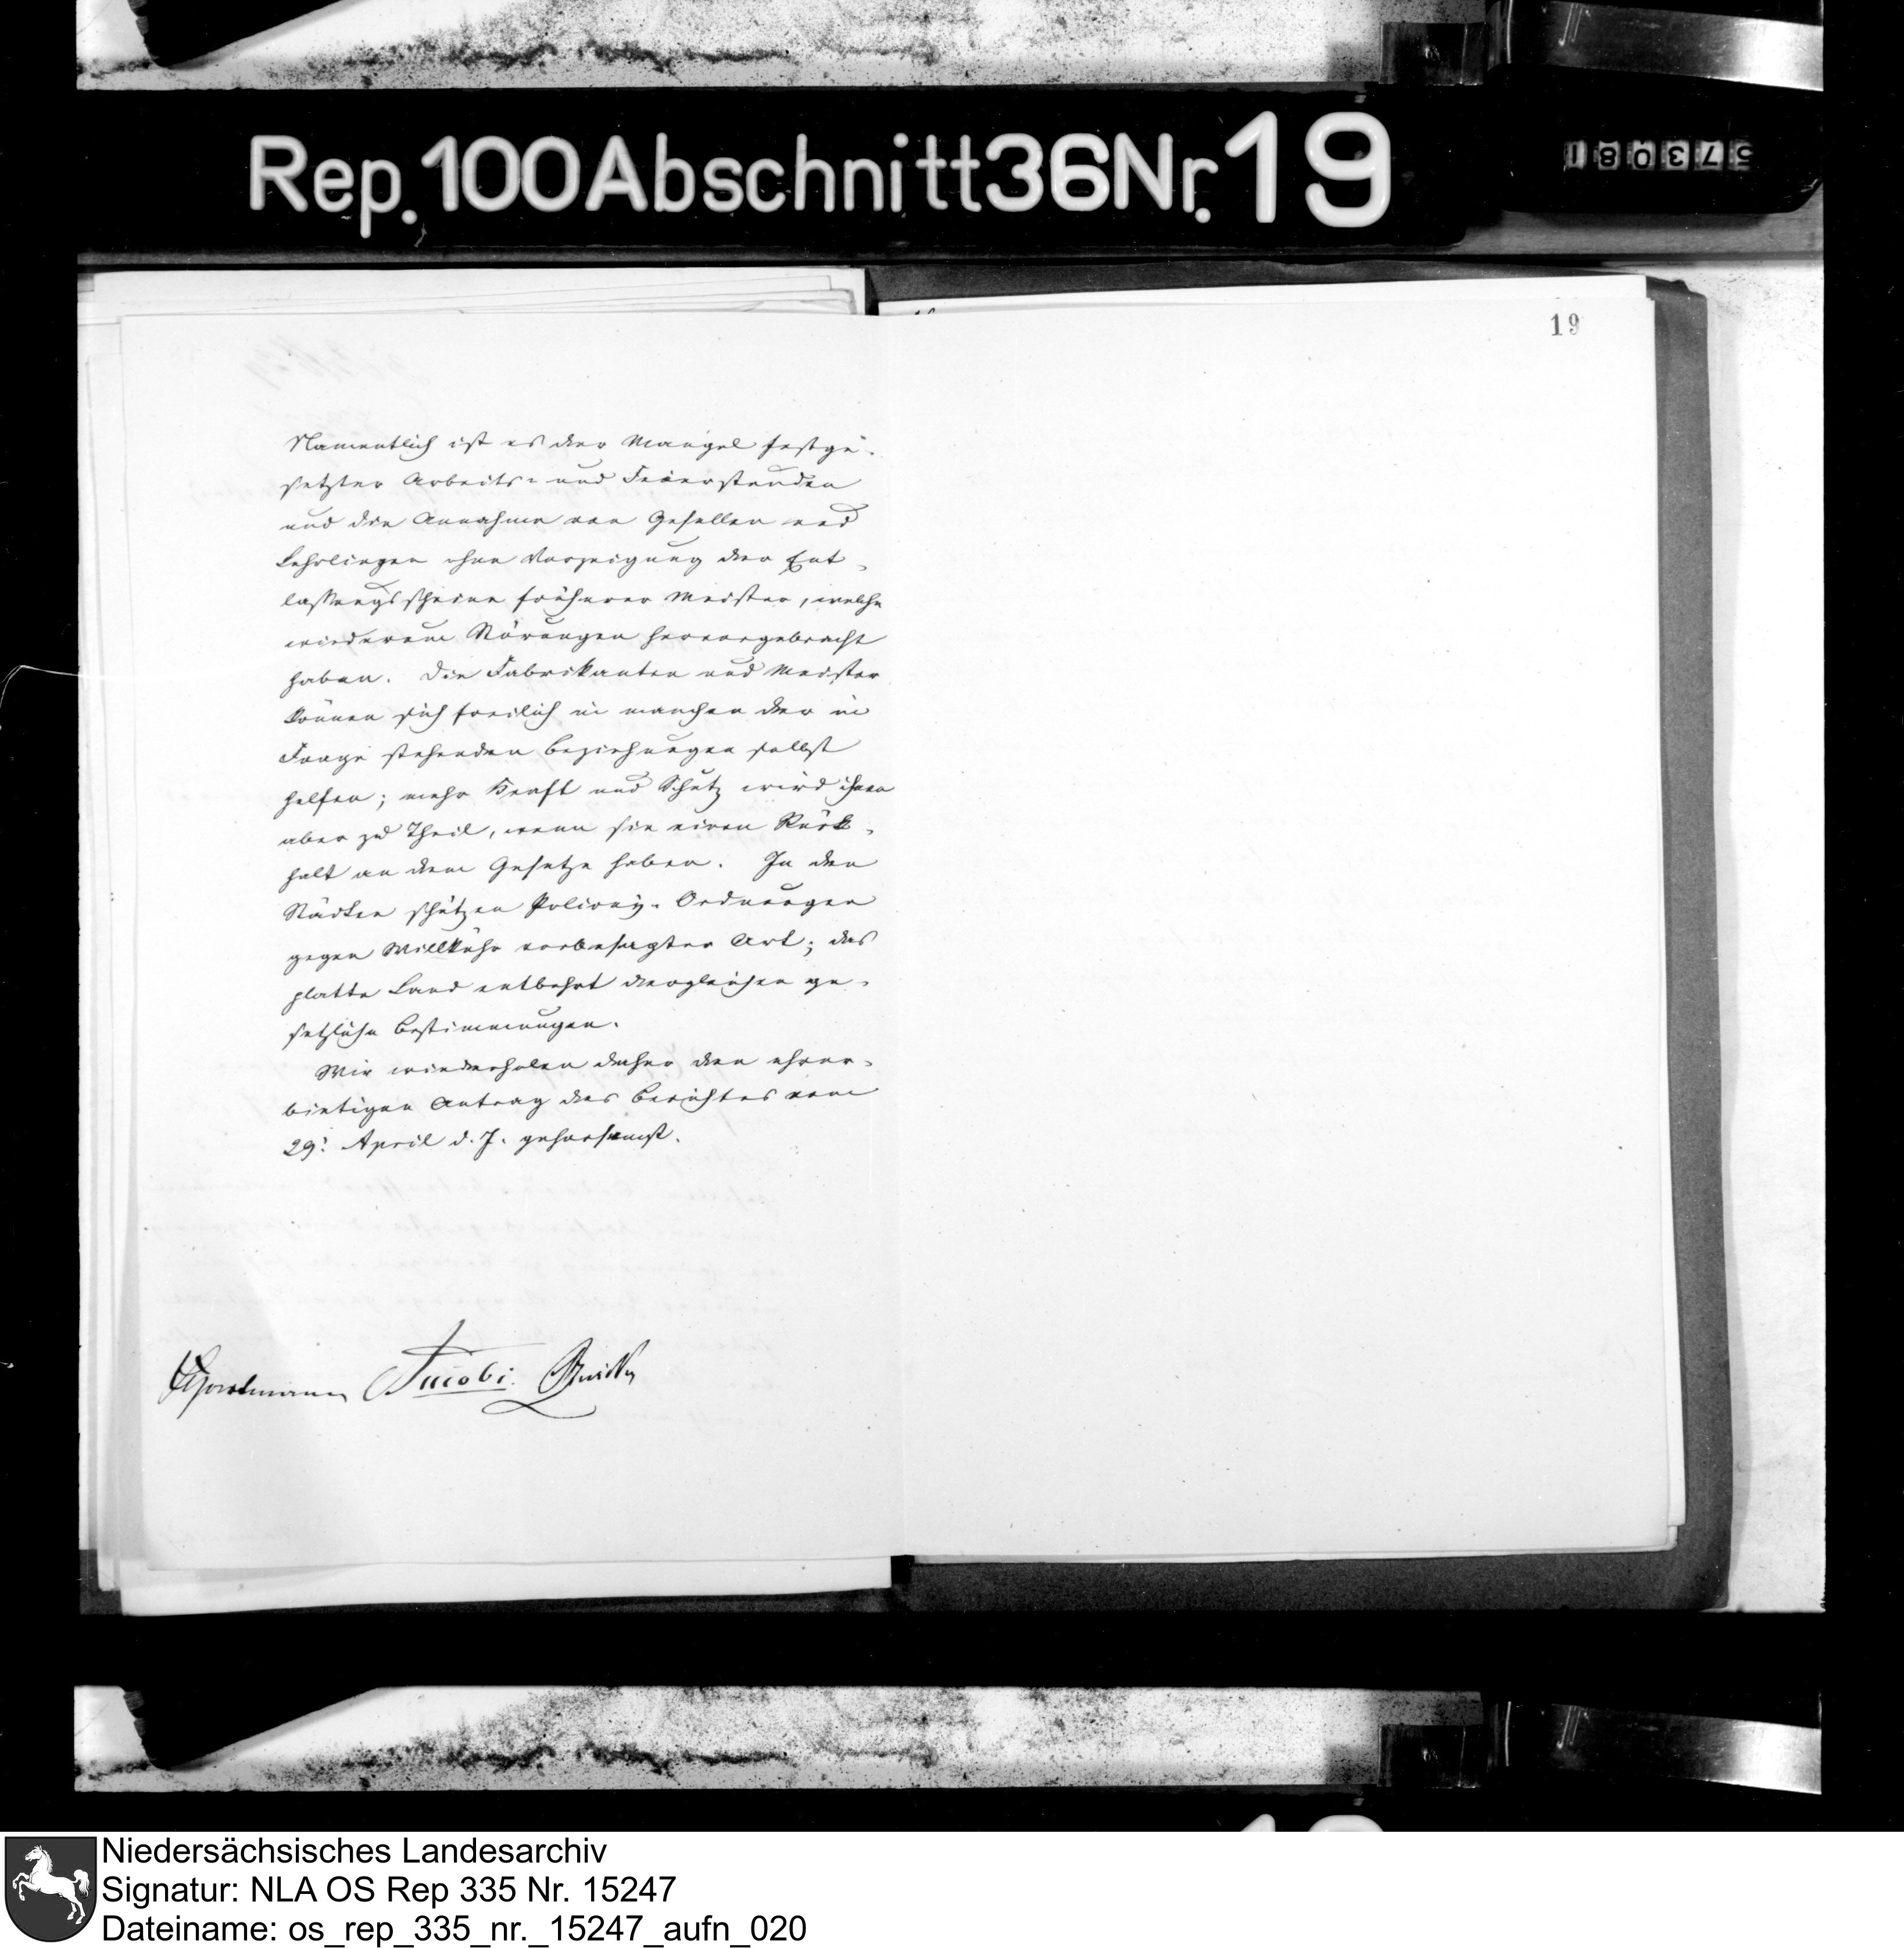 Rep. 100 Abschnitt 36 Nr. 19
573081
19
Namentlich ist es der Mangel festge-
setzter Arbeits- und Feierstunden
und die Annahme von Gesellen und
Lehrlingen ohne Vorzeigung der Ent-
lassungsscheine früherer Meister, welche
wiederum Störungen hervorgebracht
haben. Die Fabrikanten und Meister
können sich freilich in manchen der in
Frage stehenden Beziehungen selbst
helfen; mehr Kraft und Schutz wird ihnen
aber zu Theil, wenn sie einen Rück-
halt an dem Gesetze haben. In den
Städten schützen Polizey-Ordnungen
gegen Willkühr vorbesagter Art; das
platte Land entbehrt dergleichen ge-
setzliche Bestimmungen.
Wir wiederholen daher den ehrer-
bietigen Antrag des Berichtes vom
29. April d. J. gehorsamst.
Jacobi
Niedersächsisches Landesarchiv
Signatur: NLA OS Rep 335 Nr. 15247
Dateiname: os_rep_335_nr._15247_aufn_020